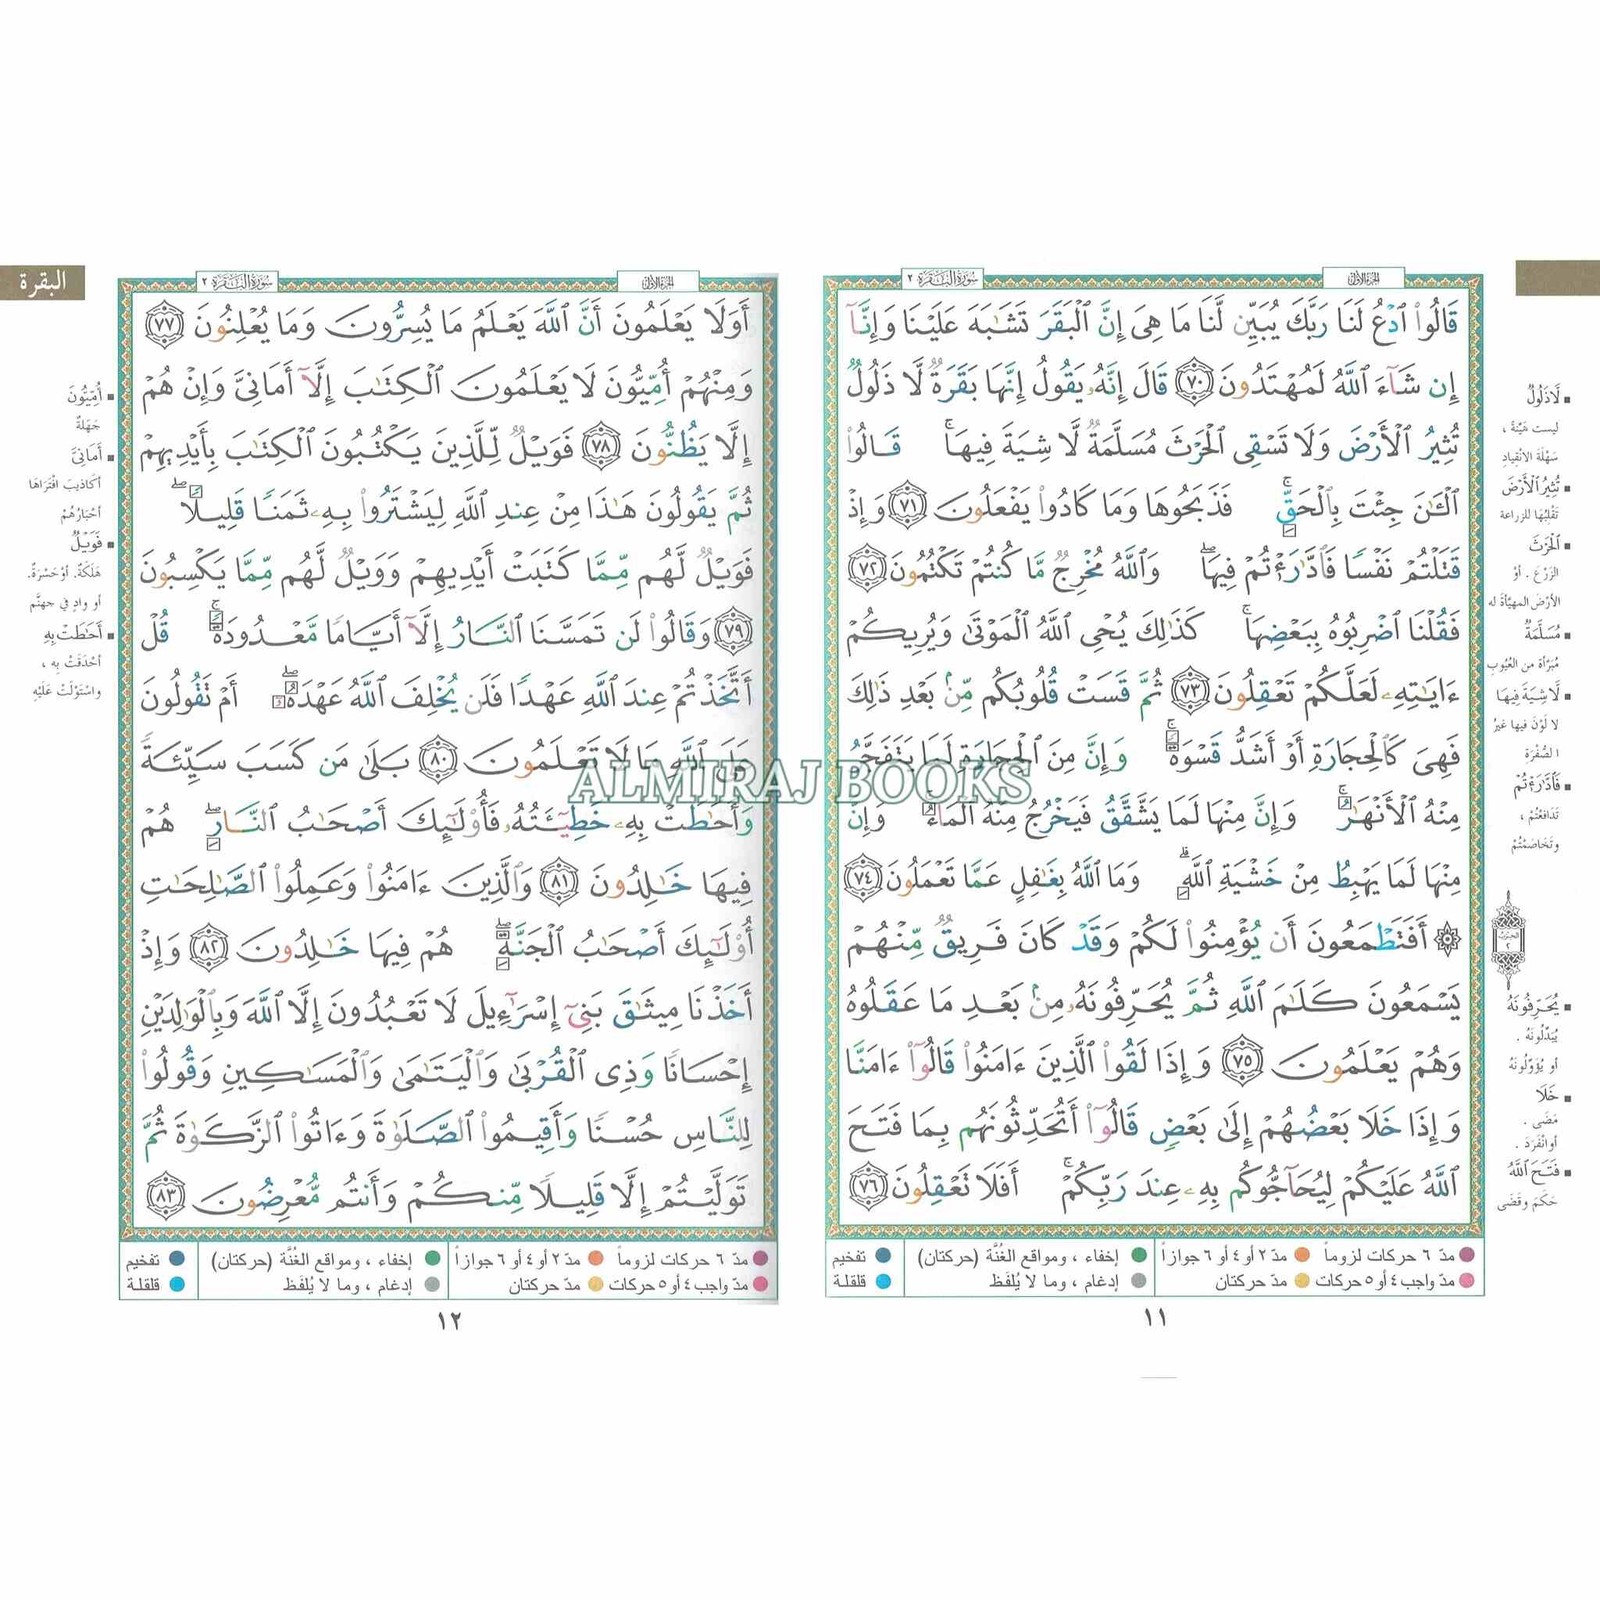 الجزء الأول
سورة البقرة ٢
قَالُوا۟ ٱدْعُ لَنَا رَبَّكَ يُبَيِّن لَّنَا مَا هِىَ إِنَّ ٱلْبَقَرَ تَشَٰبَهَ عَلَيْنَا وَإِنَّآ
إِن شَآءَ ٱللَّهُ لَمُهْتَدُونَ ٧٠ قَالَ إِنَّهُۥ يَقُولُ إِنَّهَا بَقَرَةٌ لَّا ذَلُولٌ
تُثِيرُ ٱلْأَرْضَ وَلَا تَسْقِى ٱلْحَرْثَ مُسَلَّمَةٌ لَّا شِيَةَ فِيهَا ۚ قَالُوا۟
ٱلْـَٰٔنَ جِئْتَ بِٱلْحَقِّ ۚ فَذَبَحُوهَا وَمَا كَادُوا۟ يَفْعَلُونَ ٧١ وَإِذْ
قَتَلْتُمْ نَفْسًا فَٱدَّٰرَْٰٔتُمْ فِيهَا ۖ وَٱللَّهُ مُخْرِجٌ مَّا كُنتُمْ تَكْتُمُونَ ٧٢
فَقُلْنَا ٱضْرِبُوهُ بِبَعْضِهَا ۚ كَذَٰلِكَ يُحْىِ ٱللَّهُ ٱلْمَوْتَىٰ وَيُرِيكُمْ
ءَايَٰتِهِۦ لَعَلَّكُمْ تَعْقِلُونَ ٧٣ ثُمَّ قَسَتْ قُلُوبُكُم مِّنۢ بَعْدِ ذَٰلِكَ
فَهِىَ كَٱلْحِجَارَةِ أَوْ أَشَدُّ قَسْوَةً ۚ وَإِنَّ مِنَ ٱلْحِجَارَةِ لَمَا يَتَفَجَّرُ
مِنْهُ ٱلْأَنْهَٰرُ ۚ وَإِنَّ مِنْهَا لَمَا يَشَّقَّقُ فَيَخْرُجُ مِنْهُ ٱلْمَآءُ ۚ وَإِنَّ
مِنْهَا لَمَا يَهْبِطُ مِنْ خَشْيَةِ ٱللَّهِ ۗ وَمَا ٱللَّهُ بِغَٰفِلٍ عَمَّا تَعْمَلُونَ ٧٤
۞ أَفَتَطْمَعُونَ أَن يُؤْمِنُوا۟ لَكُمْ وَقَدْ كَانَ فَرِيقٌ مِّنْهُمْ
يَسْمَعُونَ كَلَٰمَ ٱللَّهِ ثُمَّ يُحَرِّفُونَهُۥ مِنۢ بَعْدِ مَا عَقَلُوهُ
وَهُمْ يَعْلَمُونَ ٧٥ وَإِذَا لَقُوا۟ ٱلَّذِينَ ءَامَنُوا۟ قَالُوٓا۟ ءَامَنَّا
وَإِذَا خَلَا بَعْضُهُمْ إِلَىٰ بَعْضٍ قَالُوٓا۟ أَتُحَدِّثُونَهُم بِمَا فَتَحَ
ٱللَّهُ عَلَيْكُمْ لِيُحَآجُّوكُم بِهِۦ عِندَ رَبِّكُمْ ۚ أَفَلَا تَعْقِلُونَ ٧٦
لَّا ذَلُولٌ
ليست هَيِّنة ،
سَهْلَةَ الانْقِيادِ
تُثِيرُ ٱلْأَرْضَ
تَقْلِبُهَا للزراعة
ٱلْحَرْثَ
الزَّرْعَ . أوْ
الأرْضَ المهيَّأةَ له
مُسَلَّمَةٌ
مُبَرَّأة من العُيُوبِ
لَّا شِيَةَ فِيهَا
لا لَوْنَ فيها غيرُ
الصُّفْرَةِ
فَٱدَّٰرَْٰٔتُمْ
تَدَافَعْتُمْ ،
وتَخَاصَمْتُمْ
الحزب
٢
يُحَرِّفُونَهُ
يُبَدِّلُونَهُ .
أو يُؤَوِّلُونَهُ
خَلَا
مَضَى .
أو انْفَرَدَ .
فَتَحَ ٱللَّهُ
حَكَمَ وقَضَى
مدّ ٦ حركات لزوماً
مدّ ٢ أو ٤ أو ٦ جوازاً
إخفاء ، ومواقع الغُنَّة (حركتان)
تفخيم
مدّ واجب ٤ أو ٥ حركات
مدّ حركتان
إدغام ، وما لا يُلفَظ
قلقلة
١١
البقرة
الجزء الأول
سورة البقرة ٢
أَوَلَا يَعْلَمُونَ أَنَّ ٱللَّهَ يَعْلَمُ مَا يُسِرُّونَ وَمَا يُعْلِنُونَ ٧٧
وَمِنْهُمْ أُمِّيُّونَ لَا يَعْلَمُونَ ٱلْكِتَٰبَ إِلَّآ أَمَانِىَّ وَإِنْ هُمْ
إِلَّا يَظُنُّونَ ٧٨ فَوَيْلٌ لِّلَّذِينَ يَكْتُبُونَ ٱلْكِتَٰبَ بِأَيْدِيهِمْ
ثُمَّ يَقُولُونَ هَٰذَا مِنْ عِندِ ٱللَّهِ لِيَشْتَرُوا۟ بِهِۦ ثَمَنًا قَلِيلًا ۖ
فَوَيْلٌ لَّهُم مِّمَّا كَتَبَتْ أَيْدِيهِمْ وَوَيْلٌ لَّهُم مِّمَّا يَكْسِبُونَ
٧٩ وَقَالُوا۟ لَن تَمَسَّنَا ٱلنَّارُ إِلَّآ أَيَّامًا مَّعْدُودَةً ۚ قُلْ
أَتَّخَذْتُمْ عِندَ ٱللَّهِ عَهْدًا فَلَن يُخْلِفَ ٱللَّهُ عَهْدَهُۥٓ ۖ أَمْ تَقُولُونَ
عَلَى ٱللَّهِ مَا لَا تَعْلَمُونَ ٨٠ بَلَىٰ مَن كَسَبَ سَيِّئَةً
وَأَحَٰطَتْ بِهِۦ خَطِيٓـَٔتُهُۥ فَأُو۟لَٰٓئِكَ أَصْحَٰبُ ٱلنَّارِ ۖ هُمْ
فِيهَا خَٰلِدُونَ ٨١ وَٱلَّذِينَ ءَامَنُوا۟ وَعَمِلُوا۟ ٱلصَّٰلِحَٰتِ
أُو۟لَٰٓئِكَ أَصْحَٰبُ ٱلْجَنَّةِ ۖ هُمْ فِيهَا خَٰلِدُونَ ٨٢ وَإِذْ
أَخَذْنَا مِيثَٰقَ بَنِىٓ إِسْرَٰٓءِيلَ لَا تَعْبُدُونَ إِلَّا ٱللَّهَ وَبِٱلْوَٰلِدَيْنِ
إِحْسَانًا وَذِى ٱلْقُرْبَىٰ وَٱلْيَتَٰمَىٰ وَٱلْمَسَٰكِينِ وَقُولُوا۟
لِلنَّاسِ حُسْنًا وَأَقِيمُوا۟ ٱلصَّلَوٰةَ وَءَاتُوا۟ ٱلزَّكَوٰةَ ثُمَّ
تَوَلَّيْتُمْ إِلَّا قَلِيلًا مِّنكُمْ وَأَنتُم مُّعْرِضُونَ ٨٣
أُمِّيُّونَ
جَهَلةٌ
أَمَانِىَّ
أكَاذيبَ افْتَرَاهَا
أحْبَارُهُمْ
فَوَيْلٌ
هَلَكَةٌ. أوْ حَسْرَةٌ.
أو وادٍ في جهنَّم
أَحَٰطَتْ بِهِ
أحْدَقَتْ بِهِ ،
واسْتَوْلَتْ عَلَيْهِ
مدّ ٦ حركات لزوماً
مدّ ٢ أو ٤ أو ٦ جوازاً
إخفاء ، ومواقع الغُنَّة (حركتان)
تفخيم
مدّ واجب ٤ أو ٥ حركات
مدّ حركتان
إدغام ، وما لا يُلفَظ
قلقلة
١٢
ALMIRAJ BOOKS